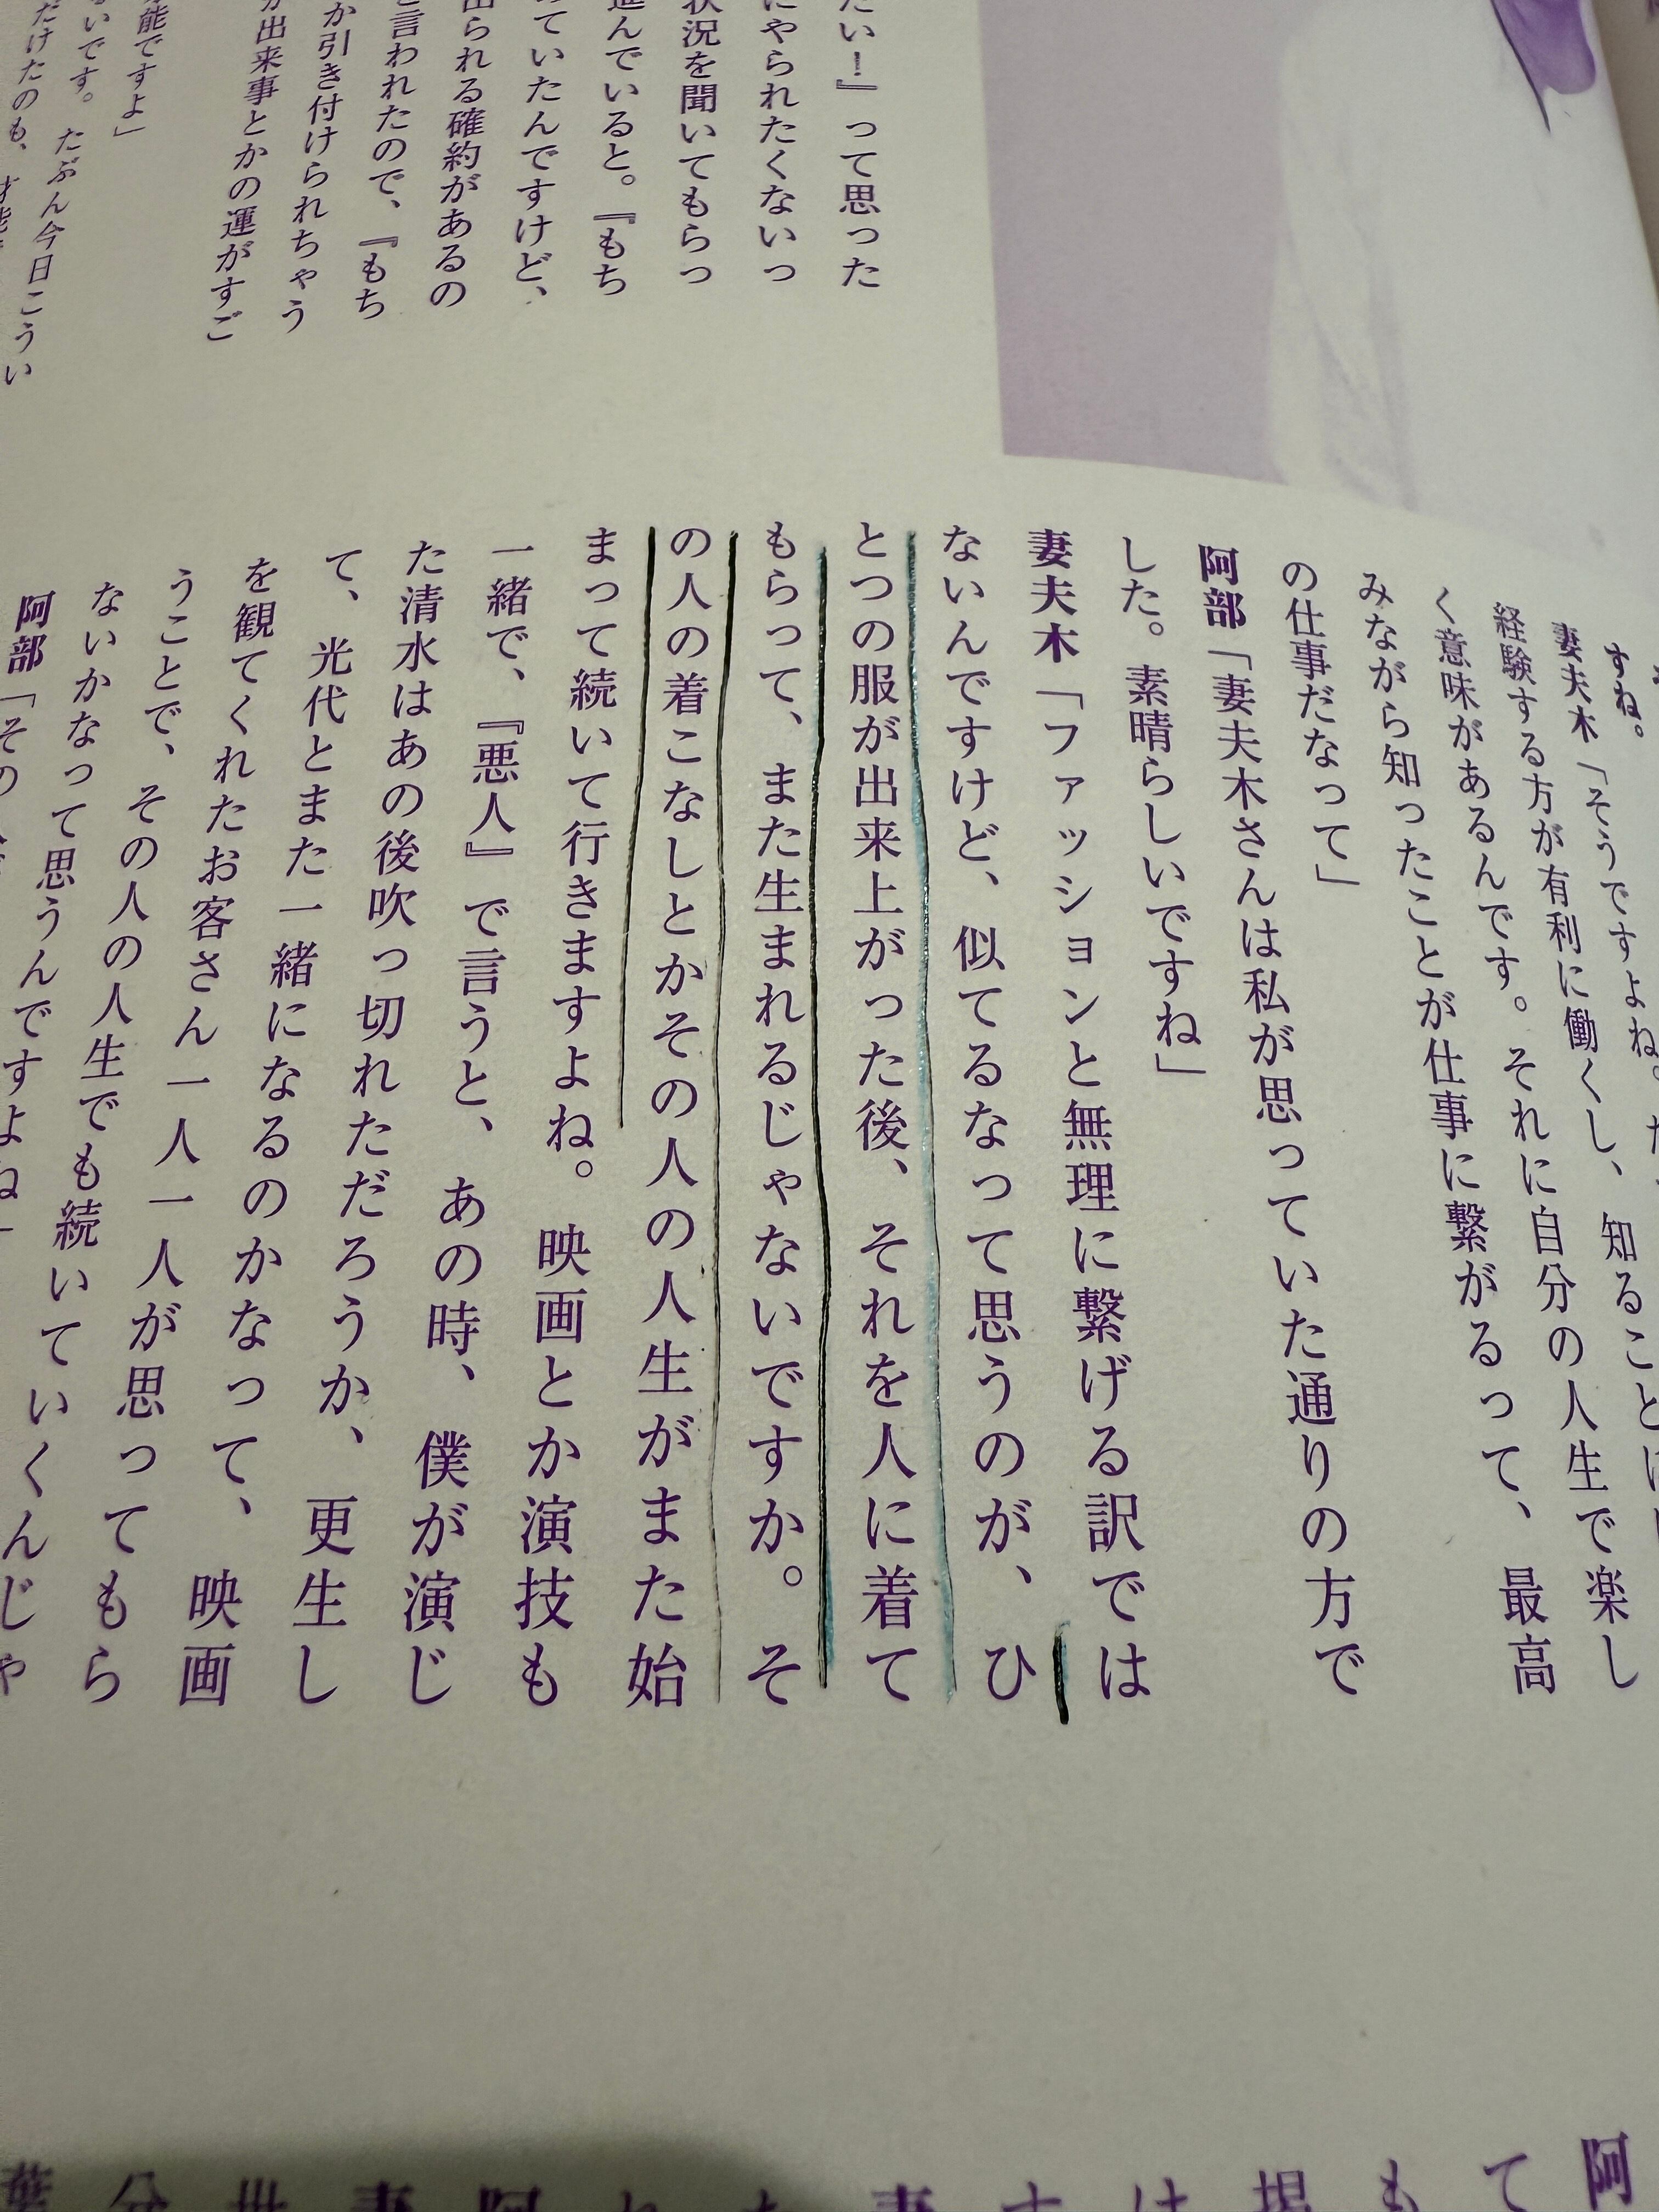 たい！』って思った
にやられたくないっ
状況を聞いてもらっ
進んでいると。『もち
ていたんですけど、
られる確約があるの
言われたので、『もち
か引き付けられちゃう
出来事とかの運がすご
能ですよ」
いです。たぶん今日こうい
だけたのも、
すね。
妻夫木「そうですよね。
知ることは
経験する方が有利に働くし、
自分の人生で楽し
く意味があるんです。それに
最高
みながら知ったことが仕事に繋がるって、
の仕事だなって」
阿部「妻夫木さんは私が思っていた通りの方で
した。素晴らしいですね」
妻夫木「ファッションと無理に繋げる訳では
ないんですけど、似てるなって思うのが、ひ
とつの服が出来上がった後、それを人に着て
もらって、また生まれるじゃないですか。そ
の人の着こなしとかその人の人生がまた始
まって続いて行きますよね。映画とか演技も
一緒で、『悪人』で言うと、あの時、僕が演じ
た清水はあの後吹っ切れただろうか、更生し
て、光代とまた一緒になるのかなって、映画
を観てくれたお客さん一人一人が思ってもら
うことで、その人の人生でも続いていくんじゃ
ないかなって思うんですよね」
阿部「その